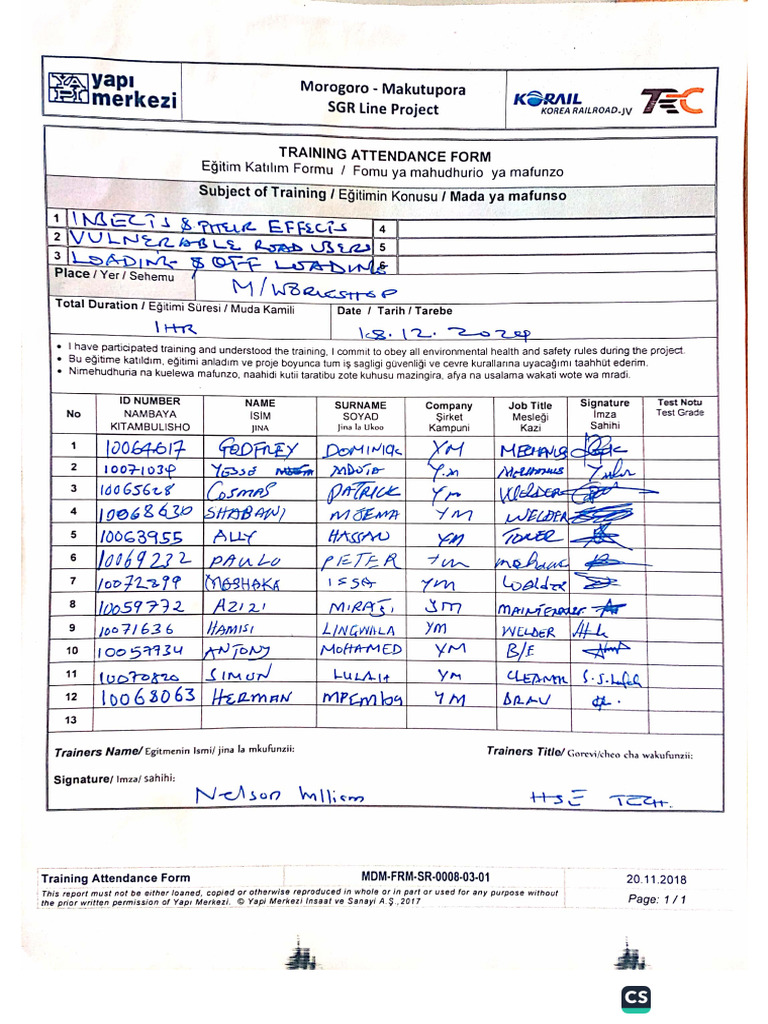 YAPI yapı merkezi
Morogoro - Makutupora
SGR Line Project
KORAIL
KOREA RAILROAD-JV
TEC
TRAINING ATTENDANCE FORM
Eğitim Katılım Formu / Fomu ya mahudhurio ya mafunzo
Subject of Training / Eğitimin Konusu / Mada ya mafunso
1 INSECTS & THEIR EFFECTS 4
2 VULNERABLE ROAD USERS 5
3 LOADING & OFF LOADING 6
Place / Yer / Sehemu M/WORKSHOP
Total Duration / Eğitimi Süresi / Muda Kamili 1HR
Date / Tarih / Tarebe 18.12.2024
• I have participated training and understood the training, I commit to obey all environmental health and safety rules during the project.
• Bu eğitime katıldım, eğitimi anladım ve proje boyunca tum iş sagligi güvenliği ve cevre kurallarına uyacağımı taahhüt ederim.
• Nimehudhuria na kuelewa mafunzo, naahidi kutii taratibu zote kuhusu mazingira, afya na usalama wakati wote wa mradi.
No ID NUMBER NAMBAYA KITAMBULISHO NAME İSİM JINA SURNAME SOYAD Jina la Ukoo Company Şirket Kampuni Job Title Mesleği Kazi Signature Imza Sahihi Test Notu Test Grade
1 10064617 GODFREY DOMINICK YM
2 10071034 YESSE Y.m
3 10065628 COSMAS PATRICK Ym WELDER
4 10068630 SHABANI MJEMA YM WELDER
5 10063955 ALLY HASSAN YM
6 10069232 PAULO PETER Ym
7 10072299 MASHAKA ISSA YM Welder
8 10059772 AZIZI MIRAJI YM
9 10071636 HAMISI LINGWALA YM WELDER
10 10057734 ANTONY MOHAMED YM B/E
11 10070820 SIMON YM
12 10068063 HERMAN YM
13
Trainers Name/ Egitmenin Ismi/ jina la mkufunzii:
Trainers Title/ Gorevi/cheo cha wakufunzii:
Signature/ Imza/ sahihi:
Nelson William HSE TECH.
Training Attendance Form MDM-FRM-SR-0008-03-01 20.11.2018
This report must not be either loaned, copied or otherwise reproduced in whole or in part or used for any purpose without
the prior written permission of Yapı Merkezi. © Yapi Merkezi Insaat ve Sanayi A.Ş.,2017
Page: 1 / 1
CS